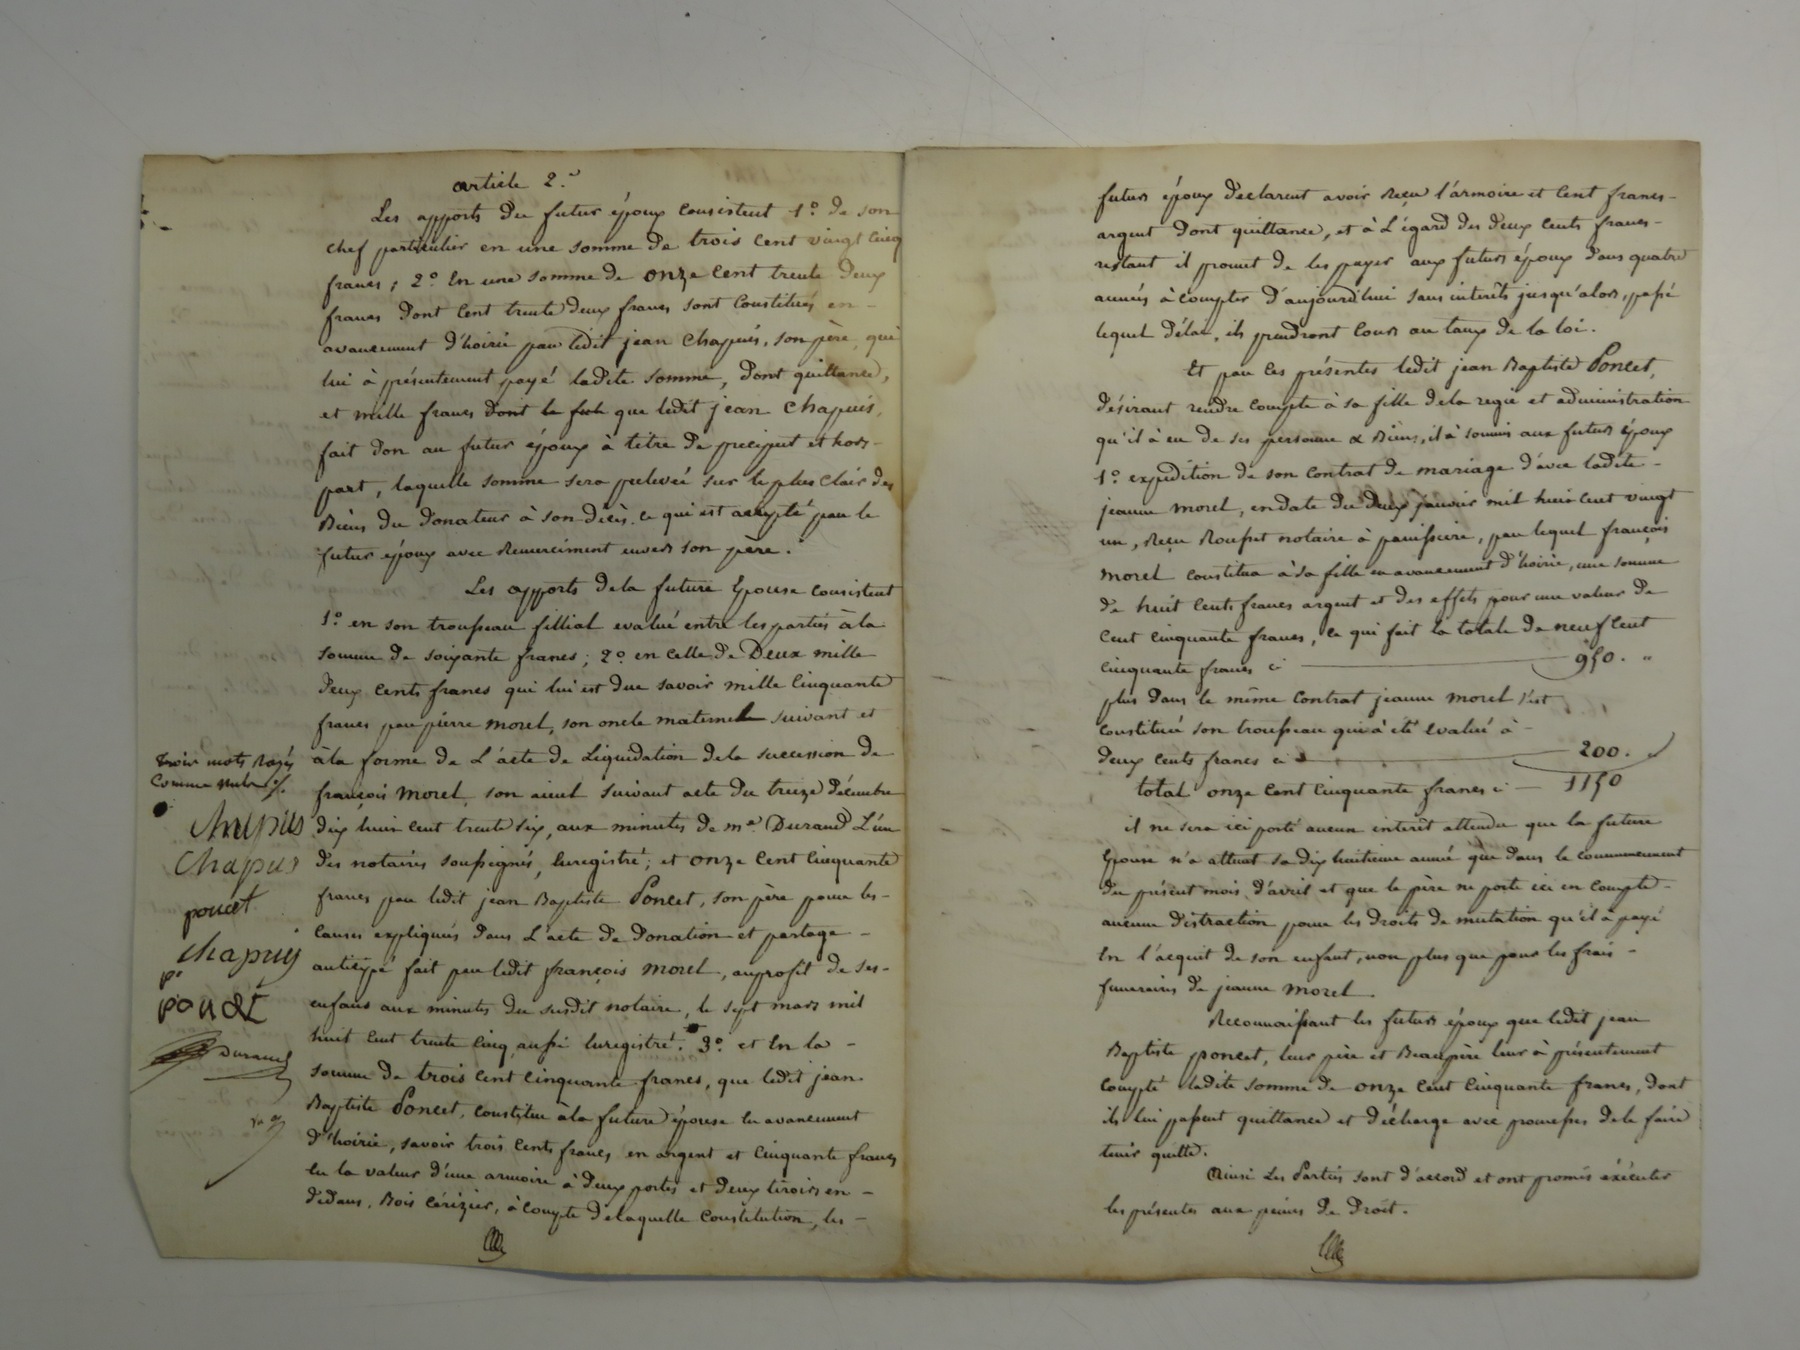 article 2.e
Les apports du futur époux consistent 1.o de son
chef particulier en une somme de trois cent vingt cinq
francs; 2.o en une somme de onze cent trente deux
francs dont cent trente deux francs sont constitués en -
avancement d'hoirie par ledit jean Chapuis, son père, qui
lui à présentement payé ladite somme, dont quittance,
et mille francs dont que ledit jean Chapuis,
fait don au futur époux à titre de preciput et hors-
part, laquelle somme sera prelevée sur le plus clair des
Biens du donateur à son décès. ce qui est accepté par le
futur époux avec Remerciment envers son père.
Les apports dela future Epouse consistent
1.o en son trousseau fillial evalué entre les parties àla
somme de soixante francs; 2.o en celle de Deux mille
deux cents francs qui lui est due savoir mille cinquante
francs par pierre morel, son oncle maternel suivant et
àla forme de L'acte de Liquidation dela succession de
françois morel, son aieul suivant acte du treize décembre
dix huit cent trente six, aux minutes de me. Durand L'un
des notaires soussignés, Enregistré; et onze cent cinquante
francs par ledit jean Baptiste Poncet, son père pour les-
causes expliquées dans L'acte de Donation et partage -
anticipé fait par ledit françois morel, auprofit de ses-
enfans aux minutes du susdit notaire, le sept mars mil
huit cent trente cinq, aussi Enregistré. 3.o et En la -
somme de trois cent cinquante francs, que ledit jean
Baptiste Poncet, constitue àla future épouse en avancement
d'hoirie, savoir trois cents francs en argent et cinquante francs
en la valeur d'une armoire à deux portes et deux tiroirs en -
dedans, Bois Cérizier, à compte delaquelle constitution, les -
trois mots Rayés
Comme nuls
Chapuis
Chapuis
poncet
Chapuis
poncet
Durand
futurs époux déclarent avoir Reçu l'armoire et cent francs -
argent dont quittance, et à L'égard des deux cents francs -
restant il promet de les payer aux futurs époux dans quatre
années à compter d'aujourd'hui sans intérêts jusqu'alors, passé
lequel délai, ils prendront cours au taux de la loi.
Et par ces présentes ledit jean Baptiste Poncet,
désirant rendre compte à sa fille dela regie et administration
qu'il à eu de ses personne & Biens, il à soumis aux futurs époux
1.o expédition de son contrat de mariage d'avec ladite -
jeanne morel, endate du deux janvier mil huit cent vingt
un, Reçu Rousset notaire à panissiere, par lequel françois
morel constitua à sa fille en avancement d'hoirie, une somme
de huit cents francs argent et des effets pour une valeur de
cent cinquante francs, ce qui fait la totale de neuf cent
cinquante francs ci 950. "
plus dans le même contrat jeanne morel s'est
constituée son trousseau qui à été evalué à -
deux cents francs ci 200.
total onze cent cinquante francs ci - 1150
il ne sera ici porté aucun interêt attendu que la future
Epouse n'a atteint sa dix huitieme année que dans le commencement
du présent mois d'avril et que le père ne porte ici en compte -
aucune distraction pour les droits de mutation qu'il à payé
En l'acquit de son enfant, non plus que pour les frais -
funeraires de jeanne morel.
Reconnaissant les futurs époux que ledit jean
Baptiste poncet, leur père et Beaupère leur à présentement
compté ladite somme de onze cent cinquante francs, dont
ils lui passent quittance et décharge avec promesses dele faire
tenir quitte.
Ainsi Les Parties sont d'accord et ont promis éxécuter
les présentes aux peines de Droit.